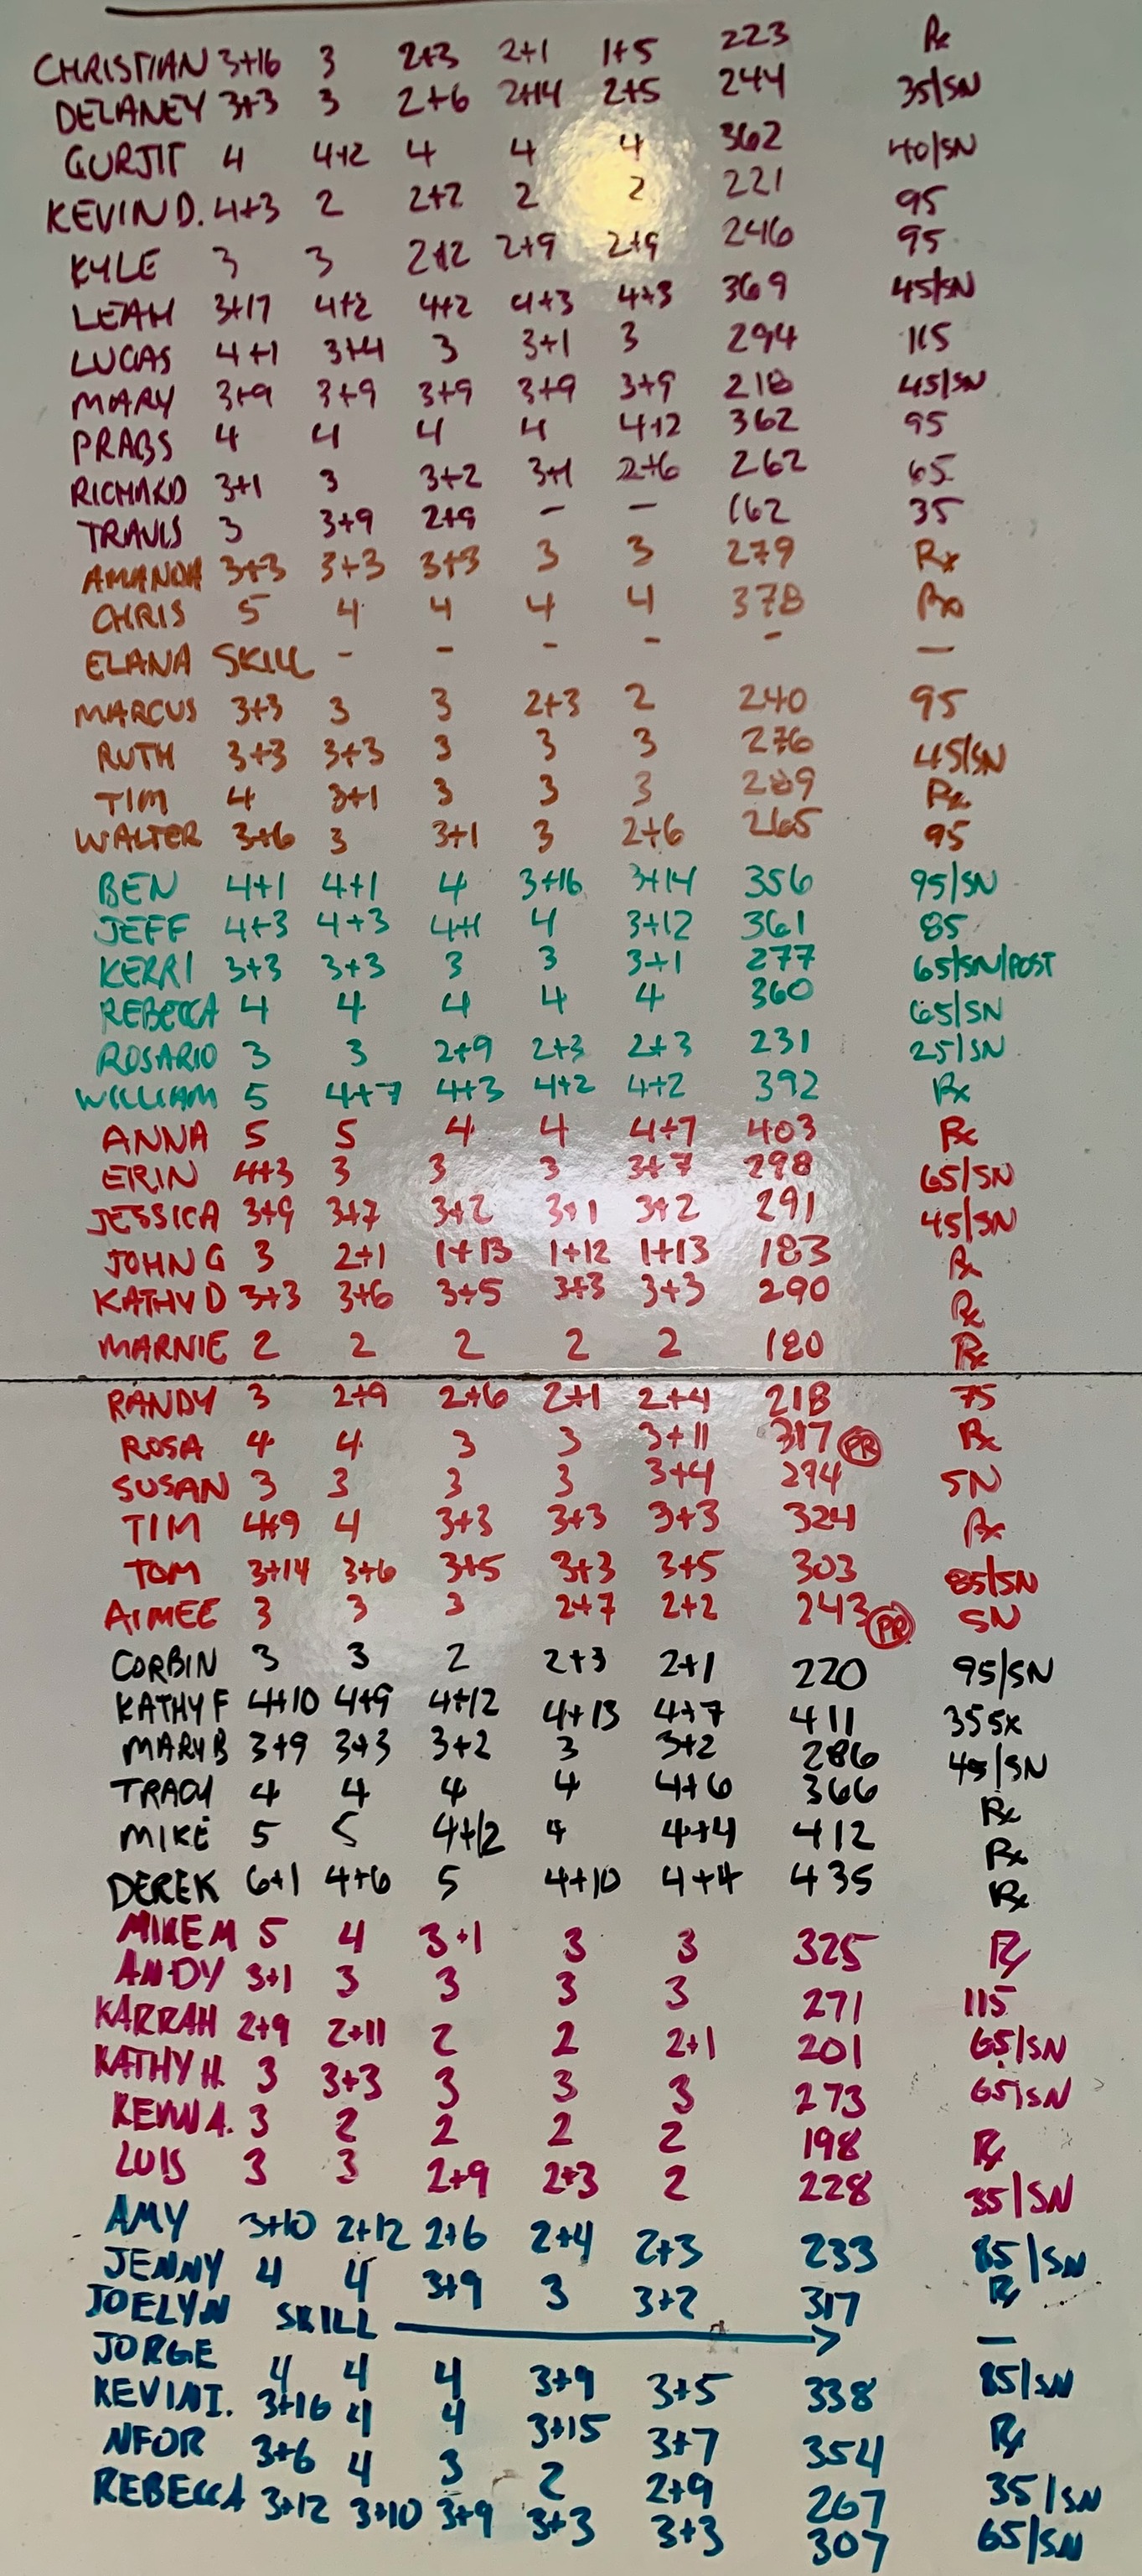 CHRISTIAN 3+16 3 2+3 2+1 1+5 223 Rx
DELANEY 3+3 3 2+6 2+14 2+5 244 35/SN
GURJIT 4 4+2 4 4 4 362 40/SN
KEVIN D. 4+3 2 2+2 2 2 221 95
KYLE 3 3 2+2 2+9 2+9 246 95
LEAH 3+17 4+2 4+2 4+3 4+3 369 45/SN
LUCAS 4+1 3+4 3 3+1 3 294 115
MARY 3+9 3+9 3+9 3+9 3+9 218 45/SN
PRABS 4 4 4 4 4+2 362 95
RICHARD 3+1 3 3+2 3+1 2+6 262 65
TRAVIS 3 3+9 2+9 - - 162 35
AMANDA 3+3 3+3 3+3 3 3 279 Rx
CHRIS 5 4 4 4 4 378 Rx
ELANA SKILL - - - - - —
MARCUS 3+3 3 3 2+3 2 240 95
RUTH 3+3 3+3 3 3 3 276 45/SN
TIM 4 3+1 3 3 3 289 Rx
WALTER 3+6 3 3+1 3 2+6 265 95
BEN 4+1 4+1 4 3+16 3+14 356 95/SN
JEFF 4+3 4+3 4+1 4 3+12 361 85
KERRI 3+3 3+3 3 3 3+1 277 65/SN/POST
REBECCA 4 4 4 4 4 360 65/SN
ROSARIO 3 3 2+9 2+3 2+3 231 25/SN
WILLIAM 5 4+7 4+3 4+2 4+2 392 Rx
ANNA 5 5 4 4 4+7 403 Rx
ERIN 4+3 3 3 3 3+7 298 65/SN
JESSICA 3+9 3+7 3+2 3+1 3+2 291 45/SN
JOHN G 3 2+1 1+13 1+12 1+13 183 Rx
KATHY D 3+3 3+6 3+5 3+3 3+3 290 Rx
MARNIE 2 2 2 2 2 180 Rx
RANDY 3 2+9 2+6 2+1 2+4 218 75
ROSA 4 4 3 3 3+11 317 PR Rx
SUSAN 3 3 3 3 3+4 274 SN
TIM 4+9 4 3+3 3+3 3+3 324 Rx
TOM 3+14 3+6 3+5 3+3 3+5 303 85/SN
AIMEE 3 3 3 2+7 2+2 243 PR SN
CORBIN 3 3 2 2+3 2+1 220 95/SN
KATHY F 4+10 4+9 4+12 4+13 4+7 411 35SX
MARY B 3+9 3+3 3+2 3 3+2 286 45/SN
TRACY 4 4 4 4 4+6 366 Rx
MIKE 5 5 4+12 4 4+4 412 Rx
DEREK 6+1 4+6 5 4+10 4+4 435 Rx
MIKE M 5 4 3+1 3 3 325 Rx
ANDY 3+1 3 3 3 3 271 115
KARRAH 2+9 2+11 2 2 2+1 201 65/SN
KATHY H. 3 3+3 3 3 3 273 65/SN
KEVIN A. 3 2 2 2 2 198 Rx
LUIS 3 3 2+9 2+3 2 228 35/SN
AMY 3+10 2+12 2+6 2+4 2+3 233 85/SN
JENNY 4 4 3+9 3 3+2 317 Rx
JOELYN SKILL —
JORGE 4 4 4 3+9 3+5 338 85/SN
KEVIN T. 3+16 4 4 3+15 3+7 354 Rx
NFOR 3+6 4 3 2 2+9 267 35/SN
REBECCA 3+12 3+10 3+9 3+3 3+3 307 65/SN